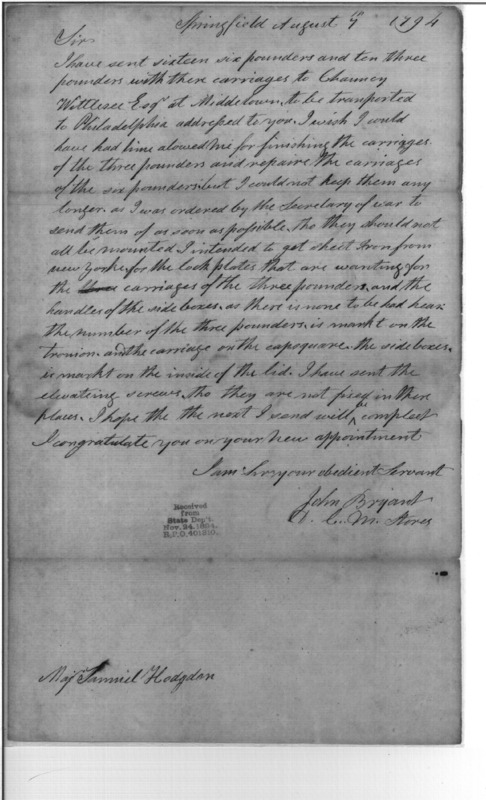 Springfield August 9 1794
Sir
I have sent sixteen six pounders and ten three
pounders with there carriages to Chauncy
Wittlesee Esqr at Middletown, to be tranported
to Philadelphia addressed to you. I wish I could
have had time alowed me for finishing the carriages
of the three pounders and repairs the carriages
of the six pounders. but I could not keep them any
longer. as I was ordered by the Secretary of war to
send them of as soon as possible. tho they should not
all be mounted I intended to get sheet Iron from
new yorke, for the lock plates that are wanting for
the carriages of the three pounders, and the
handles of the side boxes. as there is none to be had hear.
the number of the three pounders. is markt on the
tronion. and the carriage on the capsquare. the side boxes.
is markt on the inside of the lid. I have sent the
elevateing screws. tho they are not fixed in there
places. I hope the the next I send will be compleat
I congratulate you on your new appointment
I am Sir your obedient Servant
John Bryant
C. M. Stores
Received
from
State Dep't.
Nov. 24, 1894.
R.P.O. 401810.
Maj Samuel Hodgdon